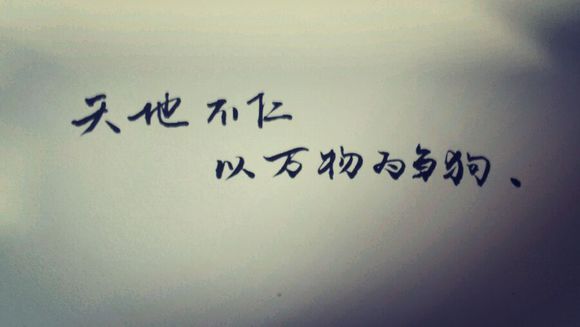 天地不仁
以万物为刍狗、